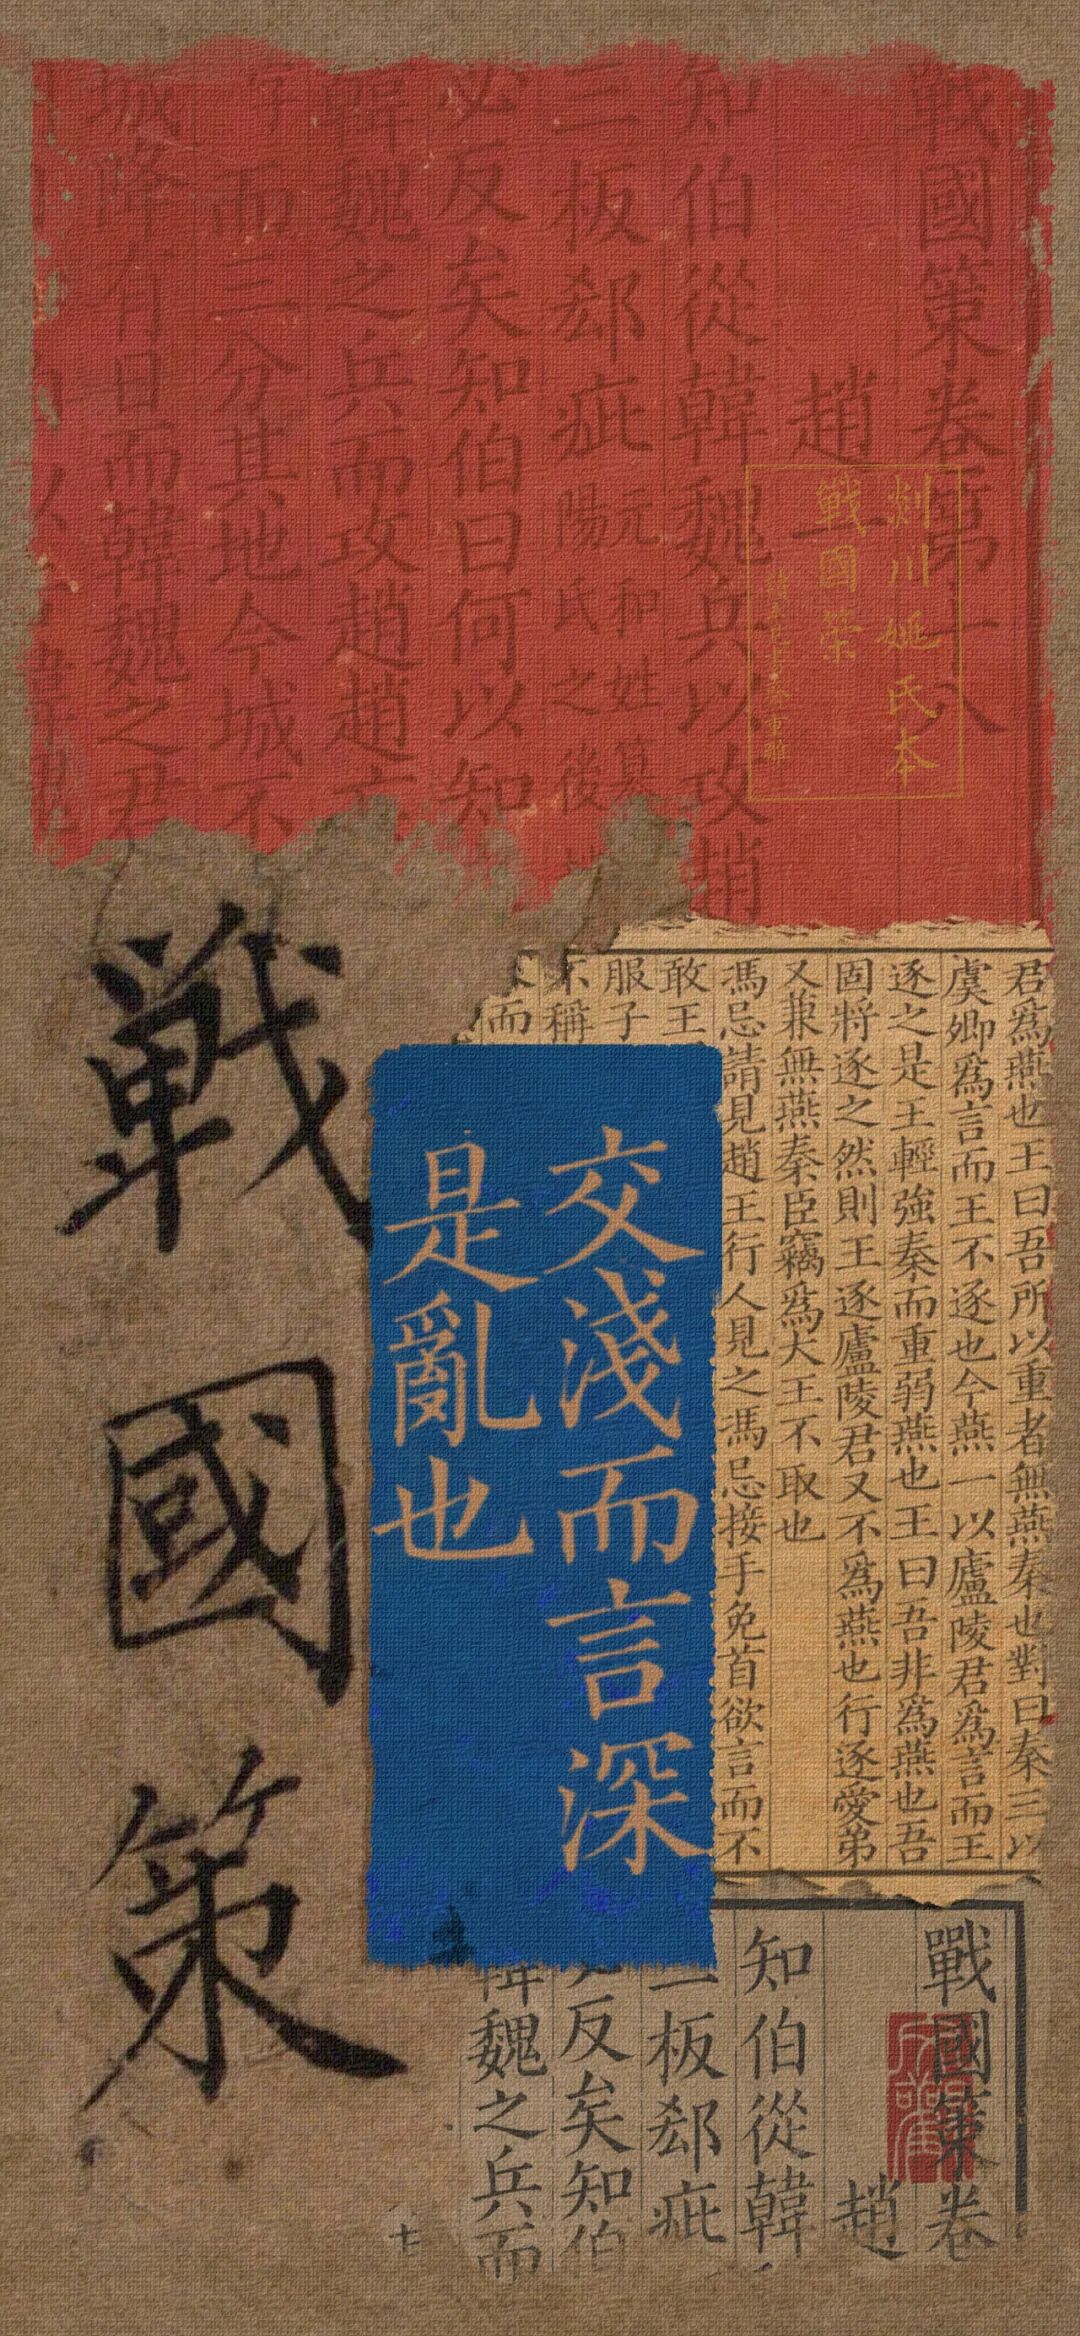 戰國策卷第十八
趙一
知伯從韓魏兵以攻趙
三板郄疵
元和姓
陽氏之後
必反矣知伯曰何以知
韓魏之兵而攻趙趙
而三分其地今城不
城降有日而韓魏之君
剡川姚氏本
戰國策
戰國策
君爲燕也王曰吾所以重者無燕秦也對曰秦三以
虞卿爲言而王不逐也今燕一以廬陵君爲言而王
逐之是王輕強秦而重弱燕也王曰吾非爲燕也吾
固將逐之然則王逐廬陵君又不爲燕也行逐愛弟
又兼無燕秦臣竊爲大王不取也
馮忌請見趙王行人見之馮忌接手免首欲言而不
敢王
服子
不稱
而
交淺而言深
是亂也
戰國策卷
趙
知伯從韓
板郄疵
反矣知伯
韓魏之兵而